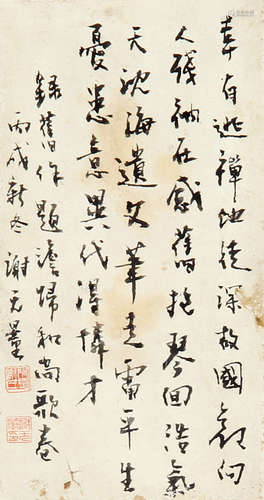 幸有逃禪地徒深故國哀何
人殘衲在感舊抱琴回浩氣
天沈海遺文筆走雷平生
憂患意異代得憐才
錄舊作題澹歸和尚歌卷
丙戌新冬謝无量